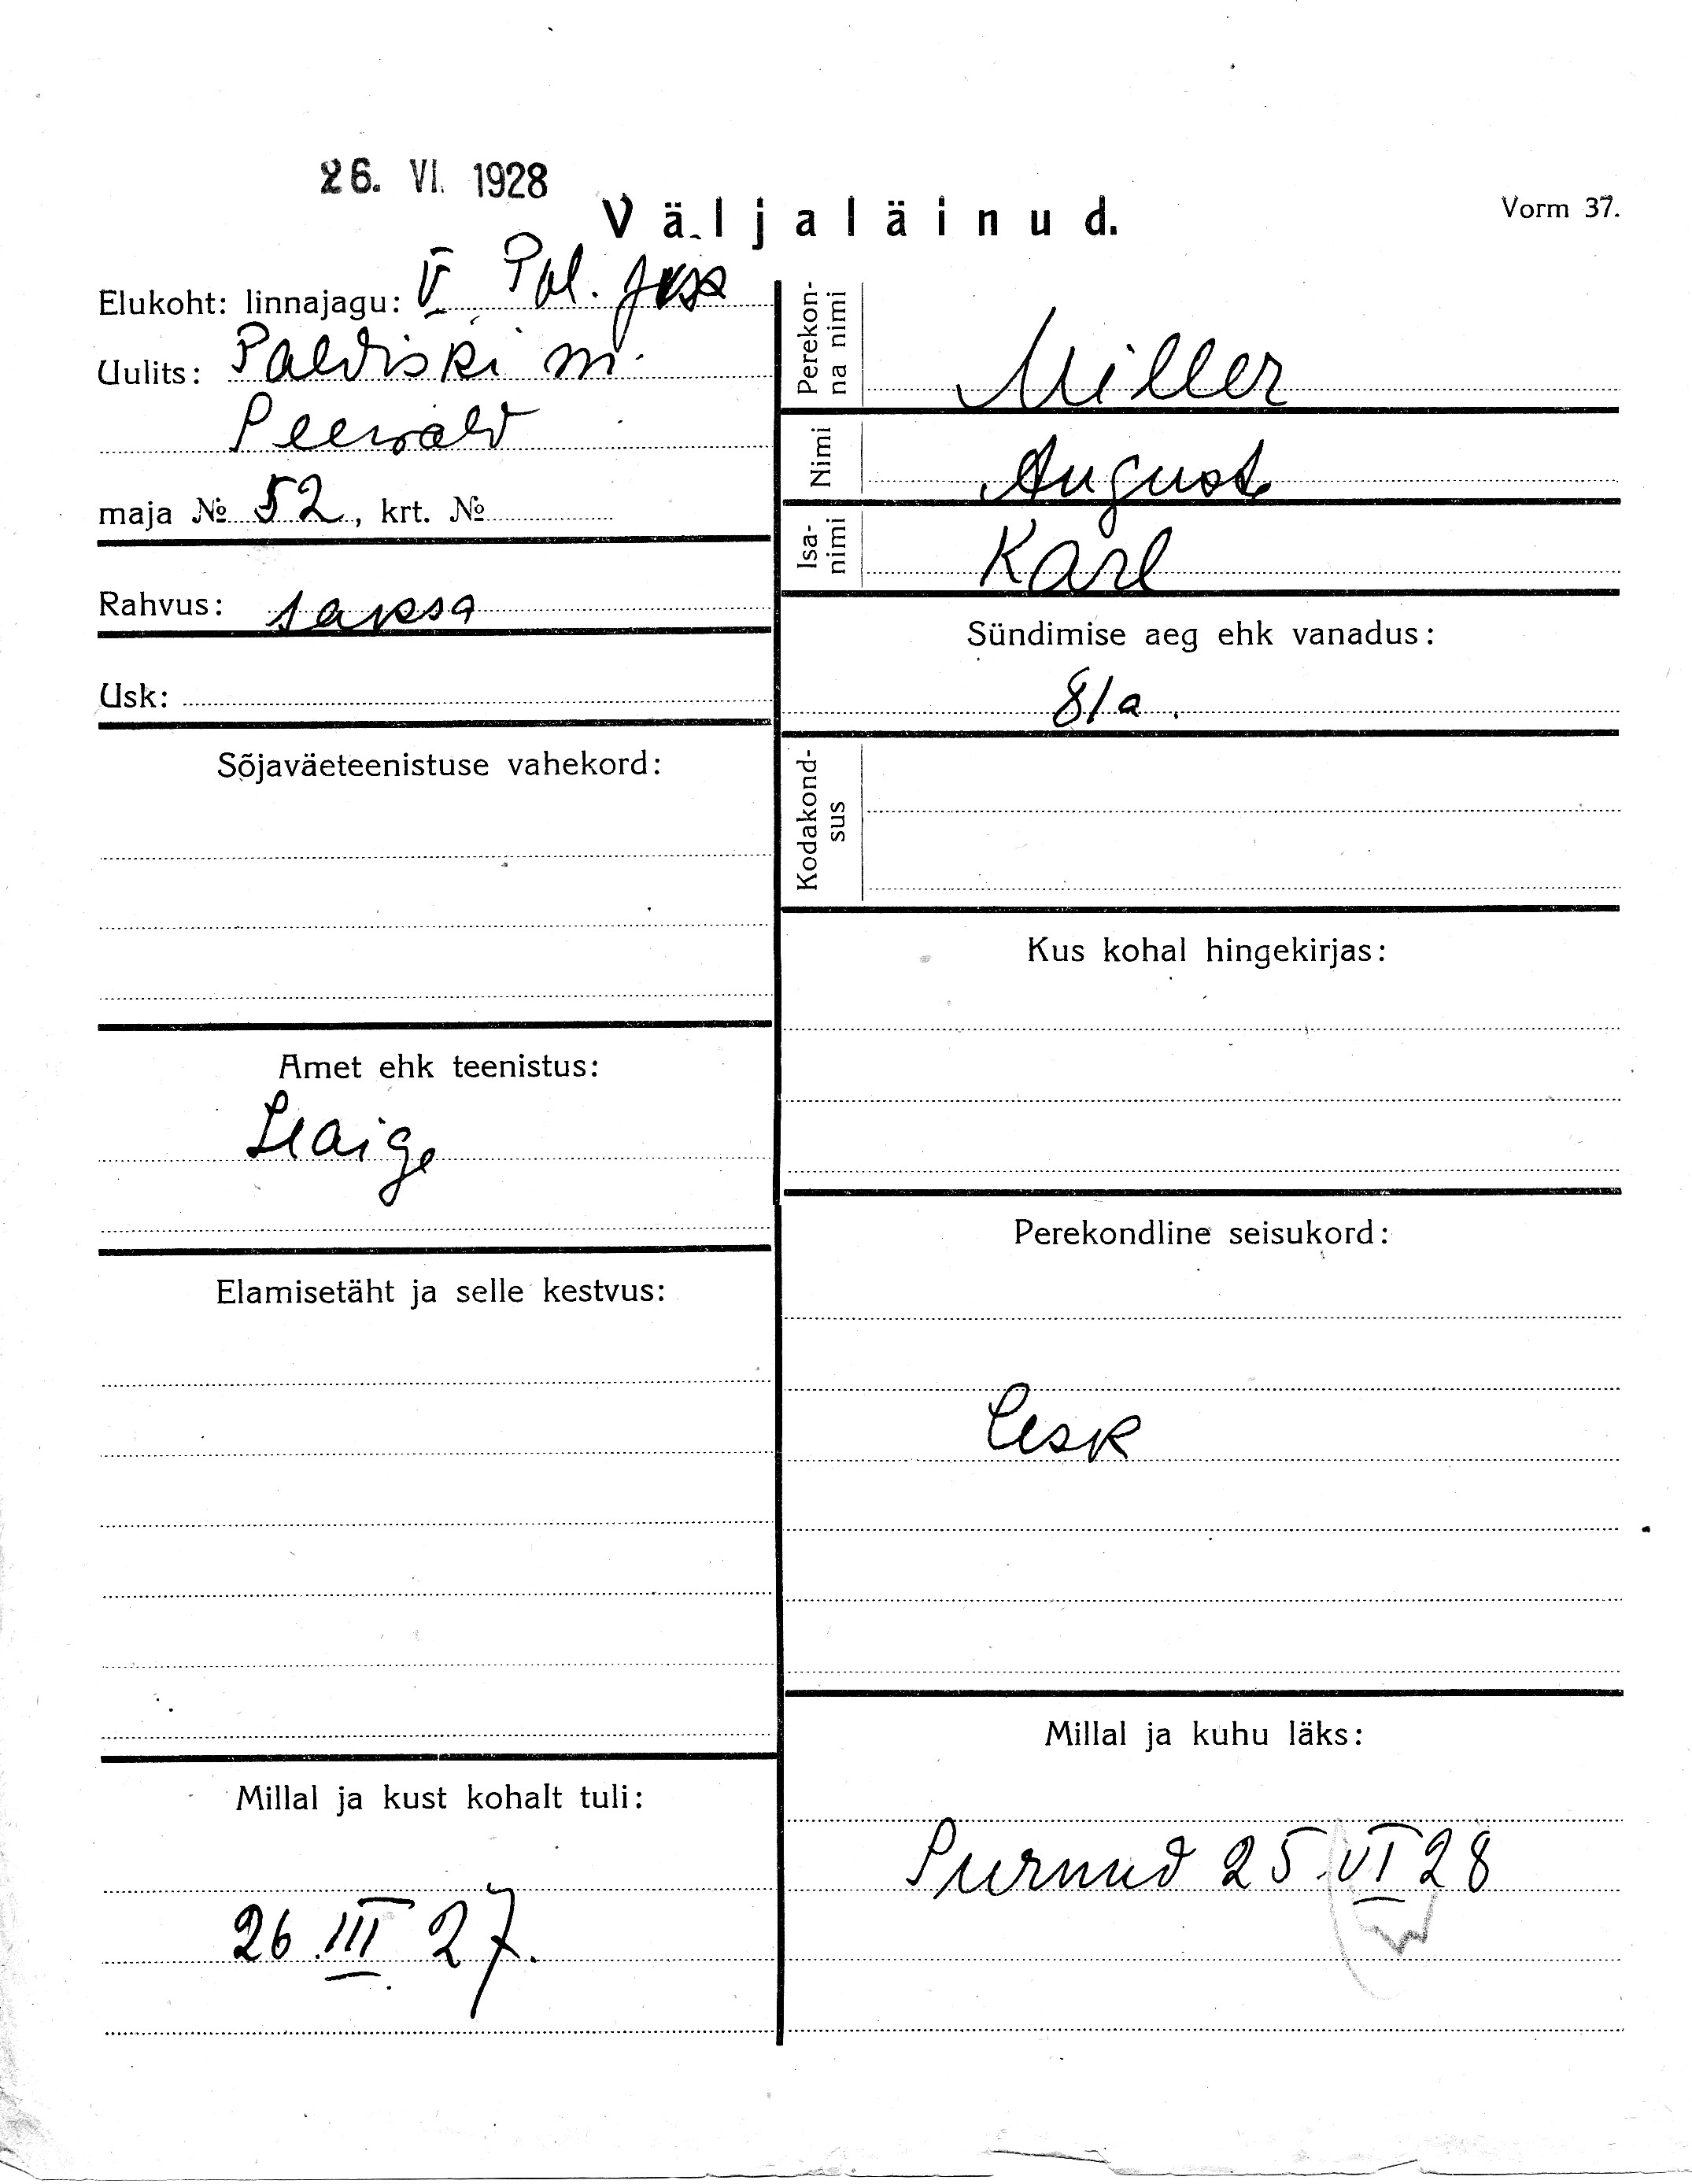 26. VI. 1928
Väljaläinud.
Vorm 37.
Elukoht: linnajagu: V Pol. jsk
Uulits: Paldiski m.
Seewald
maja № 52, krt. №
Rahvus: saksa
Usk:
Sõjaväeteenistuse vahekord:
Amet ehk teenistus:
Haige
Elamisetäht ja selle kestvus:
Millal ja kust kohalt tuli:
26.III 27.
Perekon-
na nimi
Miller
Nimi August
Isa-
nimi
Karl
Sündimise aeg ehk vanadus:
81 a.
Kodakond-
sus
Kus kohal hingekirjas:
Perekondline seisukord:
Lesk
Millal ja kuhu läks:
Surnud 25.VI 28